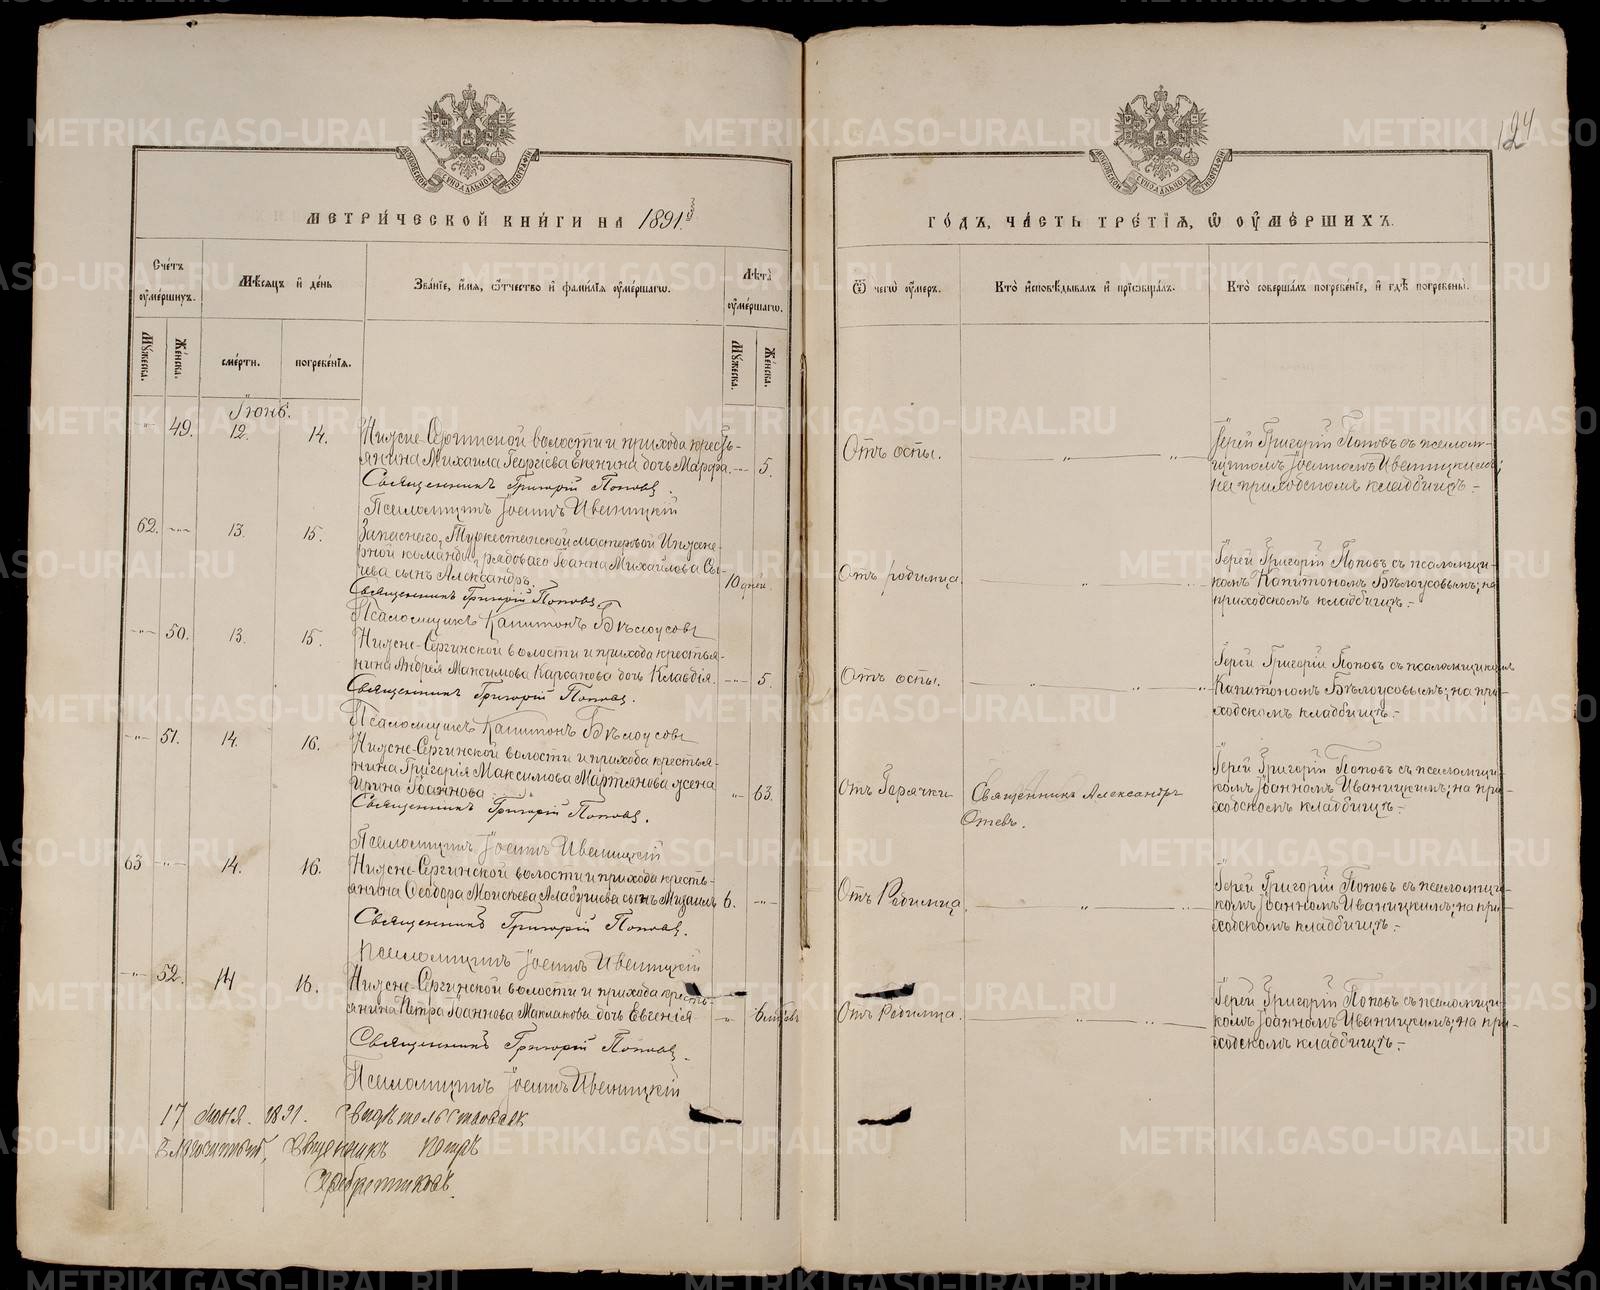 124
МЕТРИ́ЧЕСКОЙ КНИ́ГИ НА 1891й
ГО́ДЪ, ЧА́СТЬ ТРЕ́ТІѦ, Ѿ ОУМЕ́РШИХЪ.
Сче́тъ оумершихъ.
Мѣсяцъ и день
Зва́ніе, и́мя, о́тчество и фами́лія оуме́ршагѡ.
Лѣта̀ оумершагѡ.
Ѿ чегѡ̀ оумеръ.
Кто̀ исповѣдывалъ и пріѡбщалъ.
Кто̀ совершалъ погребе́ніе, и гдѣ погребены̀.
Мужеска.
Женска.
смерти.
погребенія.
Мужеска.
Женска.
Іюнь.
49. 12. 14.
Нижне-Сергинской волости и прихода кресть-
янина Михаила Георгіева Епенина дочь Марфа. 5.
Священникъ Григорій Поповъ.
Псаломщикъ Іоаннъ Иваницкій
Отъ оспы.
Іерей Григорій Поповъ съ псалом-
щикомъ Іоанномъ Иваницкимъ;
на приходскомъ кладбищѣ.-
62. 13. 15.
Запаснаго, Туркестанской мастеровой Инжене-
рной команды, рядоваго Іоанна Михайлова Сы-
чева сынъ Александръ. 10 дней.
Священникъ Григорій Поповъ.
Псаломщикъ Капитонъ Бѣлоусовъ
Отъ родимца.
Іерей Григорій Поповъ съ псаломщи-
комъ Капитономъ Бѣлоусовымъ; на
приходскомъ кладбищѣ.-
50. 13. 15.
Нижне-Сергинской волости и прихода крестья-
нина Андрея Максимова Карсакова дочь Клавдія. 5.
Священникъ Григорій Поповъ.
Псаломщикъ Капитонъ Бѣлоусовъ
Отъ оспы.
Іерей Григорій Поповъ съ псаломщикомъ
Капитономъ Бѣлоусовымъ; на при-
ходскомъ кладбищѣ.-
51. 14. 16.
Нижне-Сергинской волости и прихода крестья-
нина Григорія Максимова Мартьянова жена
Ирина Іоаннова 63.
Священникъ Григорій Поповъ.
Псаломщикъ Іоаннъ Иваницкій
Отъ Горячки
Священникъ Александръ
Іерей Григорій Поповъ съ псаломщи-
комъ Іоанномъ Иваницкимъ; на при-
ходскомъ кладбищѣ.-
63 14. 16.
Нижне-Сергинской волости и прихода кресть-
янина Ѳеодора Моисеева Алабушева сынъ Михаилъ 6.
Священникъ Григорій Поповъ.
Псаломщикъ Іоаннъ Иваницкій
Отъ Родимца.
Іерей Григорій Поповъ съ псаломщи-
комъ Іоанномъ Иваницкимъ; на при-
ходскомъ кладбищѣ.-
52. 14 16.
Нижне-Сергинской волости и прихода кресть-
янина Петра Іоаннова Маклакова дочь Евгенія
Священникъ Григорій Поповъ.
Псаломщикъ Іоаннъ Иваницкій
Отъ Родимца.
Іерей Григорій Поповъ съ псаломщи-
комъ Іоанномъ Иваницкимъ; на при-
ходскомъ кладбищѣ.-
17 Іюня. 1891. Свидѣтельствовалъ
Благочинный, Священникъ Петръ
METRIKI.GASO-URAL.RU